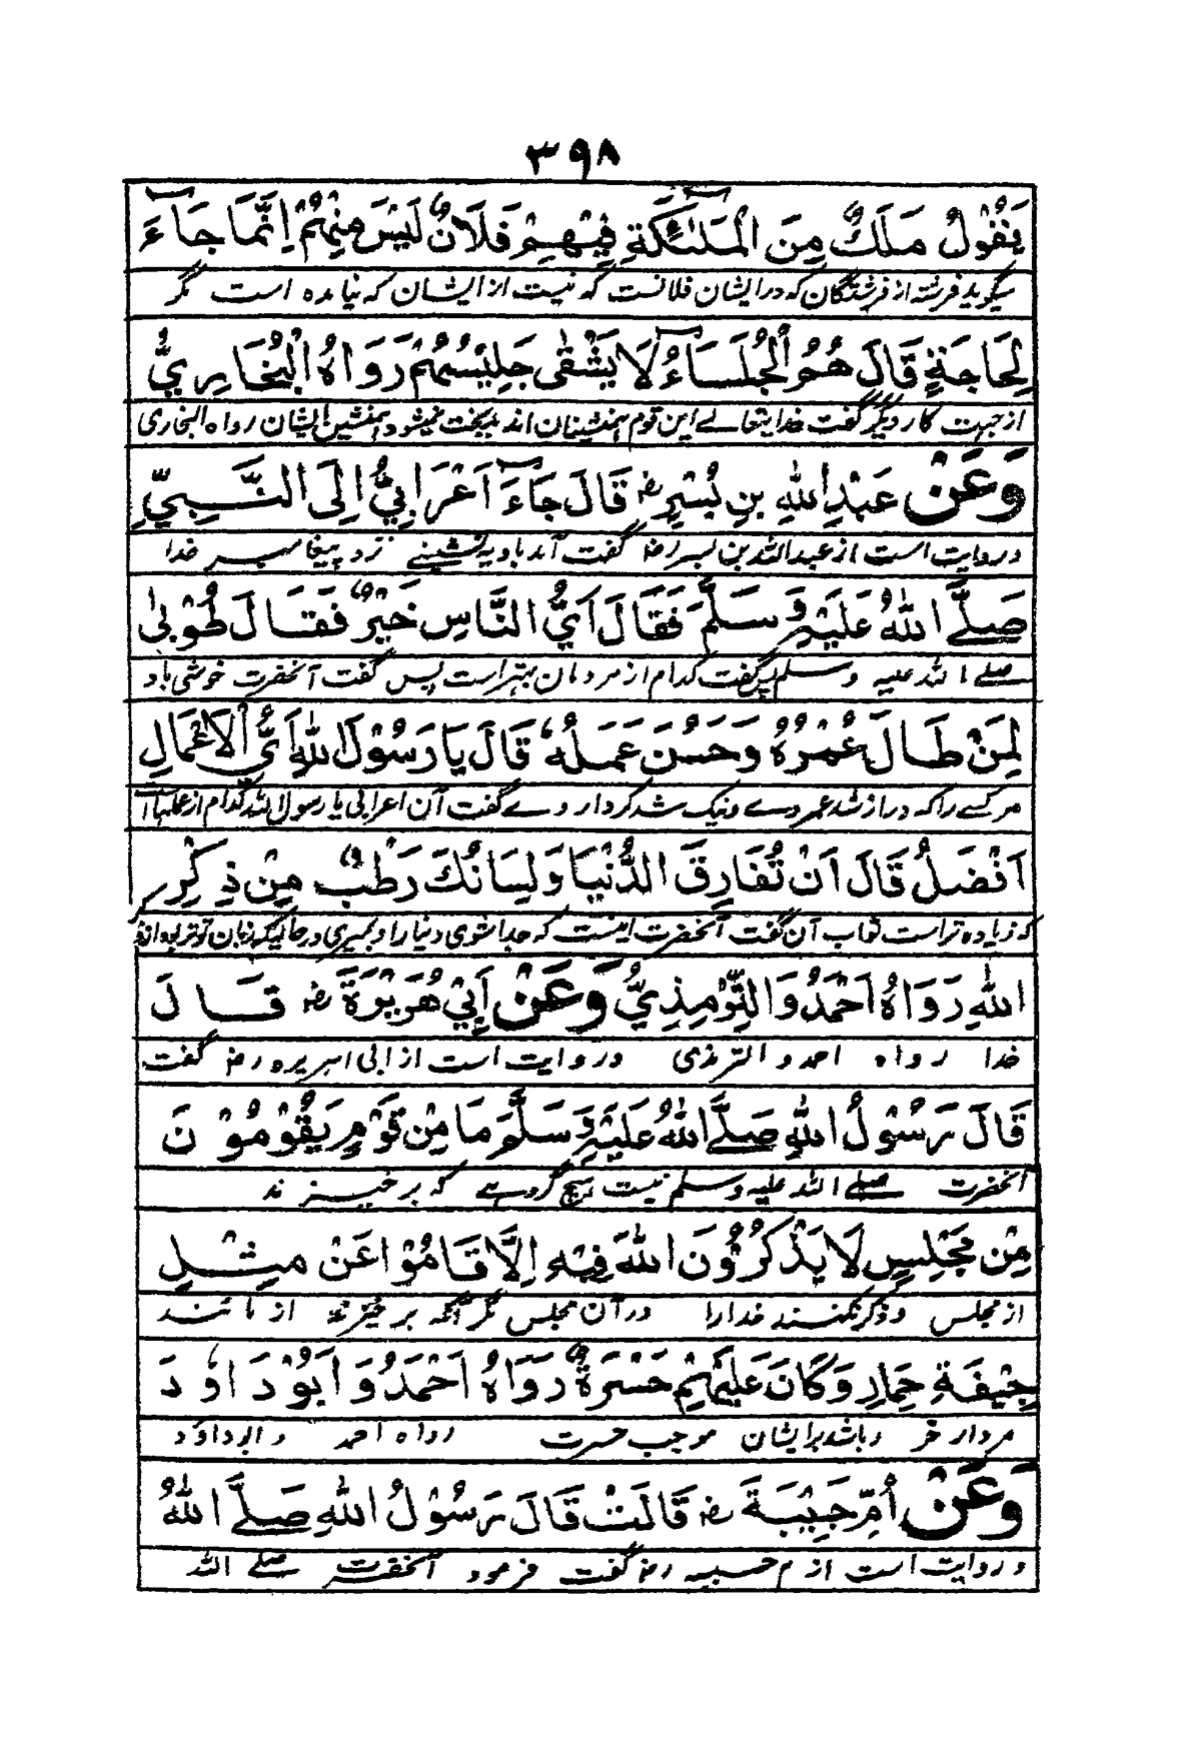 ٣٩٨
يَقُوْلُ مَلَكٌ مِنَ الْمَلٰئِكَةِ فِيْهِمْ فَلَانٌ لَيْسَ مِنْهُمْ اِنَّمَا جَآءَ
میگوید فرشته از فرشتگان که در ایشان فلانست که نیست از ایشان که نیامده است مگر
لِحَاجَةٍ قَالَ هُمُ الْجُلَسَاءُ لَا يَشْقٰى جَلِيْسُهُمْ رَوَاهُ الْبُخَارِيُّ
از جهت کار دیگر گفت خدایتعالے این قوم همنشینان اند بدبخت نمیشود همنشین ایشان رواه البخاری
وَعَنْ عَبْدِ اللهِ بنِ بُسْرٍ رض قَالَ جَآءَ اَعْرَابِيٌّ اِلَى النَّبِيِّ
و روایت است از عبدالله بن بسر رض گفت آمد بادیه نشینے نزد پیغامبر خدا
صَلَّے اللهُ عَلَيْهِ وَ سَلَّمَ فَقَالَ اَيُّ النَّاسِ خَيْرٌ فَقَالَ طُوْبٰى
صلے الله علیه و سلم پس گفت کدام از مردمان بهتر است پس گفت آنحضرت خوشی باد
لِمَنْ طَالَ عُمْرُهٗ وَحَسُنَ عَمَلُهٗ قَالَ يَا رَسُوْلَ اللهِ اَيُّ الْاَعْمَالِ
مر کسے را که دراز شد عمر وے و نیک شد کردار وے گفت آن اعرابی یا رسول الله کدام از عملها
اَفْضَلُ قَالَ اَنْ تُفَارِقَ الدُّنْيَا وَلِسَانُكَ رَطْبٌ مِنْ ذِكْرِ
که زیاده تر است ثواب آن گفت آنحضرت اینست که جدا شوی دنیا را و بمیری در حالیکه زبان تو تر بود از ذکر
اللهِ رَوَاهُ اَحْمَدُ وَ التِّرْمِذِيُّ وَعَنْ أَبِيْ هُرَيْرَةَ رض قَالَ
خدا رواه احمد و الترمذی و روایت است از ابی هریره رض گفت
قَالَ رَسُوْلُ اللهِ صَلَّے اللهُ عَلَيْهِ وَ سَلَّمَ مَا مِنْ قَوْمٍ يَقُوْمُوْنَ
آنحضرت صلے الله علیه و سلم نیست هیچ گروهے که برخیزند
مِنْ مَجْلِسٍ لَا يَذْكُرُوْنَ اللهَ فِيْهِ اِلَّا قَامُوْا عَنْ مِثْلِ
از مجلس و ذکر نکنند خدا را در آن مجلس مگر آنکه برخیزند از مانند
جِيْفَةِ حِمَارٍ وَكَانَ عَلَيْهِمْ حَسْرَةٌ رَوَاهُ اَحْمَدُ وَ اَبُوْ دَاوٗدَ
مردار خر و باشد بر ایشان موجب حسرت رواه احمد و ابو داؤد
وَعَنْ اُمِّ حَبِيْبَةَ رض قَالَتْ قَالَ رَسُوْلُ اللهِ صَلَّے اللهُ
و روایت است از ام حبیبه رض گفت فرمود آنحضرت صلے الله